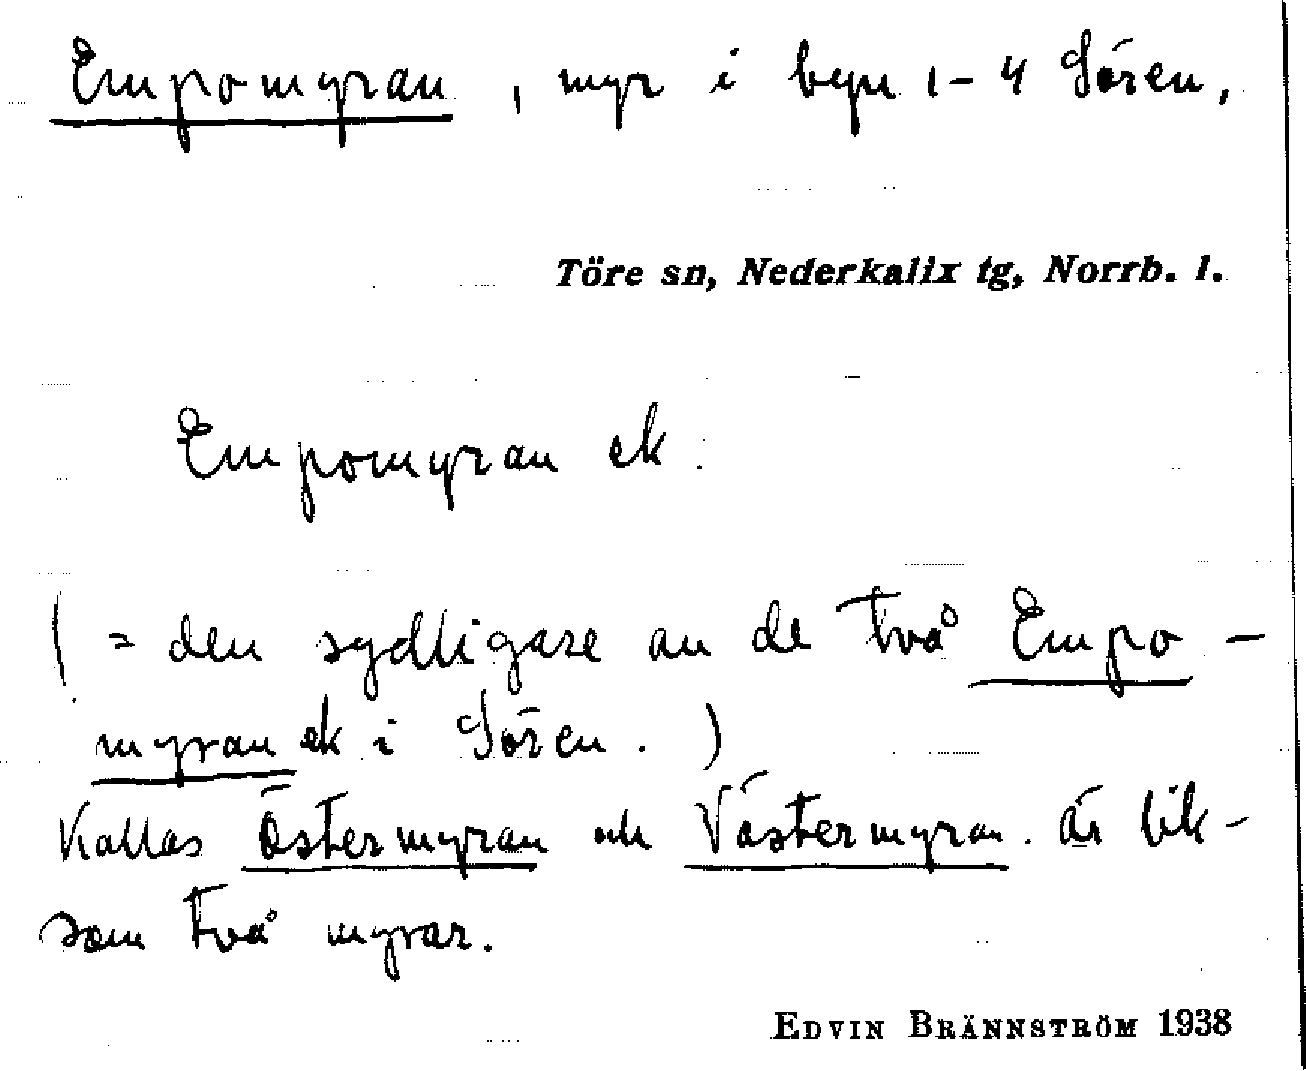 Empomyran, myr i byn 1-4 Sören,
Töre sn, Nederkalix tg, Norrb. l.
Empomyran ek.
( = den sydligare av de två Empo-
myran ek i Sören. )
Kallas Östermyran och Västermyran. Är lik-
som två myrar.
EDVIN BRÄNNSTRÖM 1938